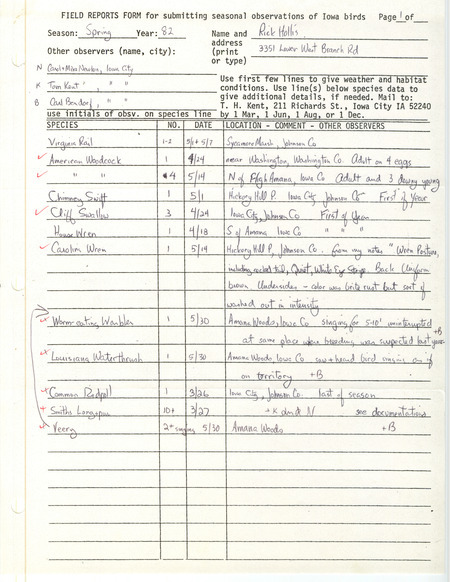 FIELD REPORTS FORM for submitting seasonal observations of Iowa birds Page 1 of
Season: Spring Year: 82 Name and Rick Hollis
address
Other observers (name, city): (print 3351 Lower West Branch Rd
or type)
N Carol + Mike Newlon, Iowa City
K Tom Kent, " "
B Carl Bendorf, " "
Use first few lines to give weather and habitat
conditions. Use line(s) below species data to
give additional details, if needed. Mail to:
T. H. Kent, 211 Richards St., Iowa City IA 52240
use initials of obsv. on species line by 1 Mar, 1 Jun, 1 Aug, or 1 Dec.
SPECIES NO. DATE LOCATION - COMMENT - OTHER OBSERVERS
Virginia Rail 1-2 5/1 + 5/7 Sycamore Marsh, Johnson Co
American Woodcock 1 4/24 near Washington, Washington Co Adult on 4 eggs
" " 4 5/14 N of Amana, Iowa Co Adult and 3 downy young
Chimney Swift 1 5/1 Hickory Hill P. Iowa City Johnson Co First of Year
Cliff Swallow 3 4/24 Iowa City, Johnson Co First of Year
House Wren 1 4/18 S of Amana Iowa Co " " "
Carolina Wren 1 5/14 Hickory Hill P, Johnson Co. from my notes "Wren Posture,
including cocked tail, Quiet, White Eye Stripe. Back Uniform
brown Undersides - color was brite rust but sort of
washed out in intensity
Worm-eating Warbler 1 5/30 Amana Woods, Iowa Co singing for 5-10' uninterrupted
at same place where breeding was suspected last year +B
Louisiana Waterthrush 1 5/30 Amana Woods, Iowa Co saw + heard bird singing as if
on territory +B
Common Redpoll 1 3/26 Iowa City, Johnson Co last of season
Smiths Longspur 10+ 3/27 + K and N see documentation
Veery 2+ singing 5/30 Amana Woods +B